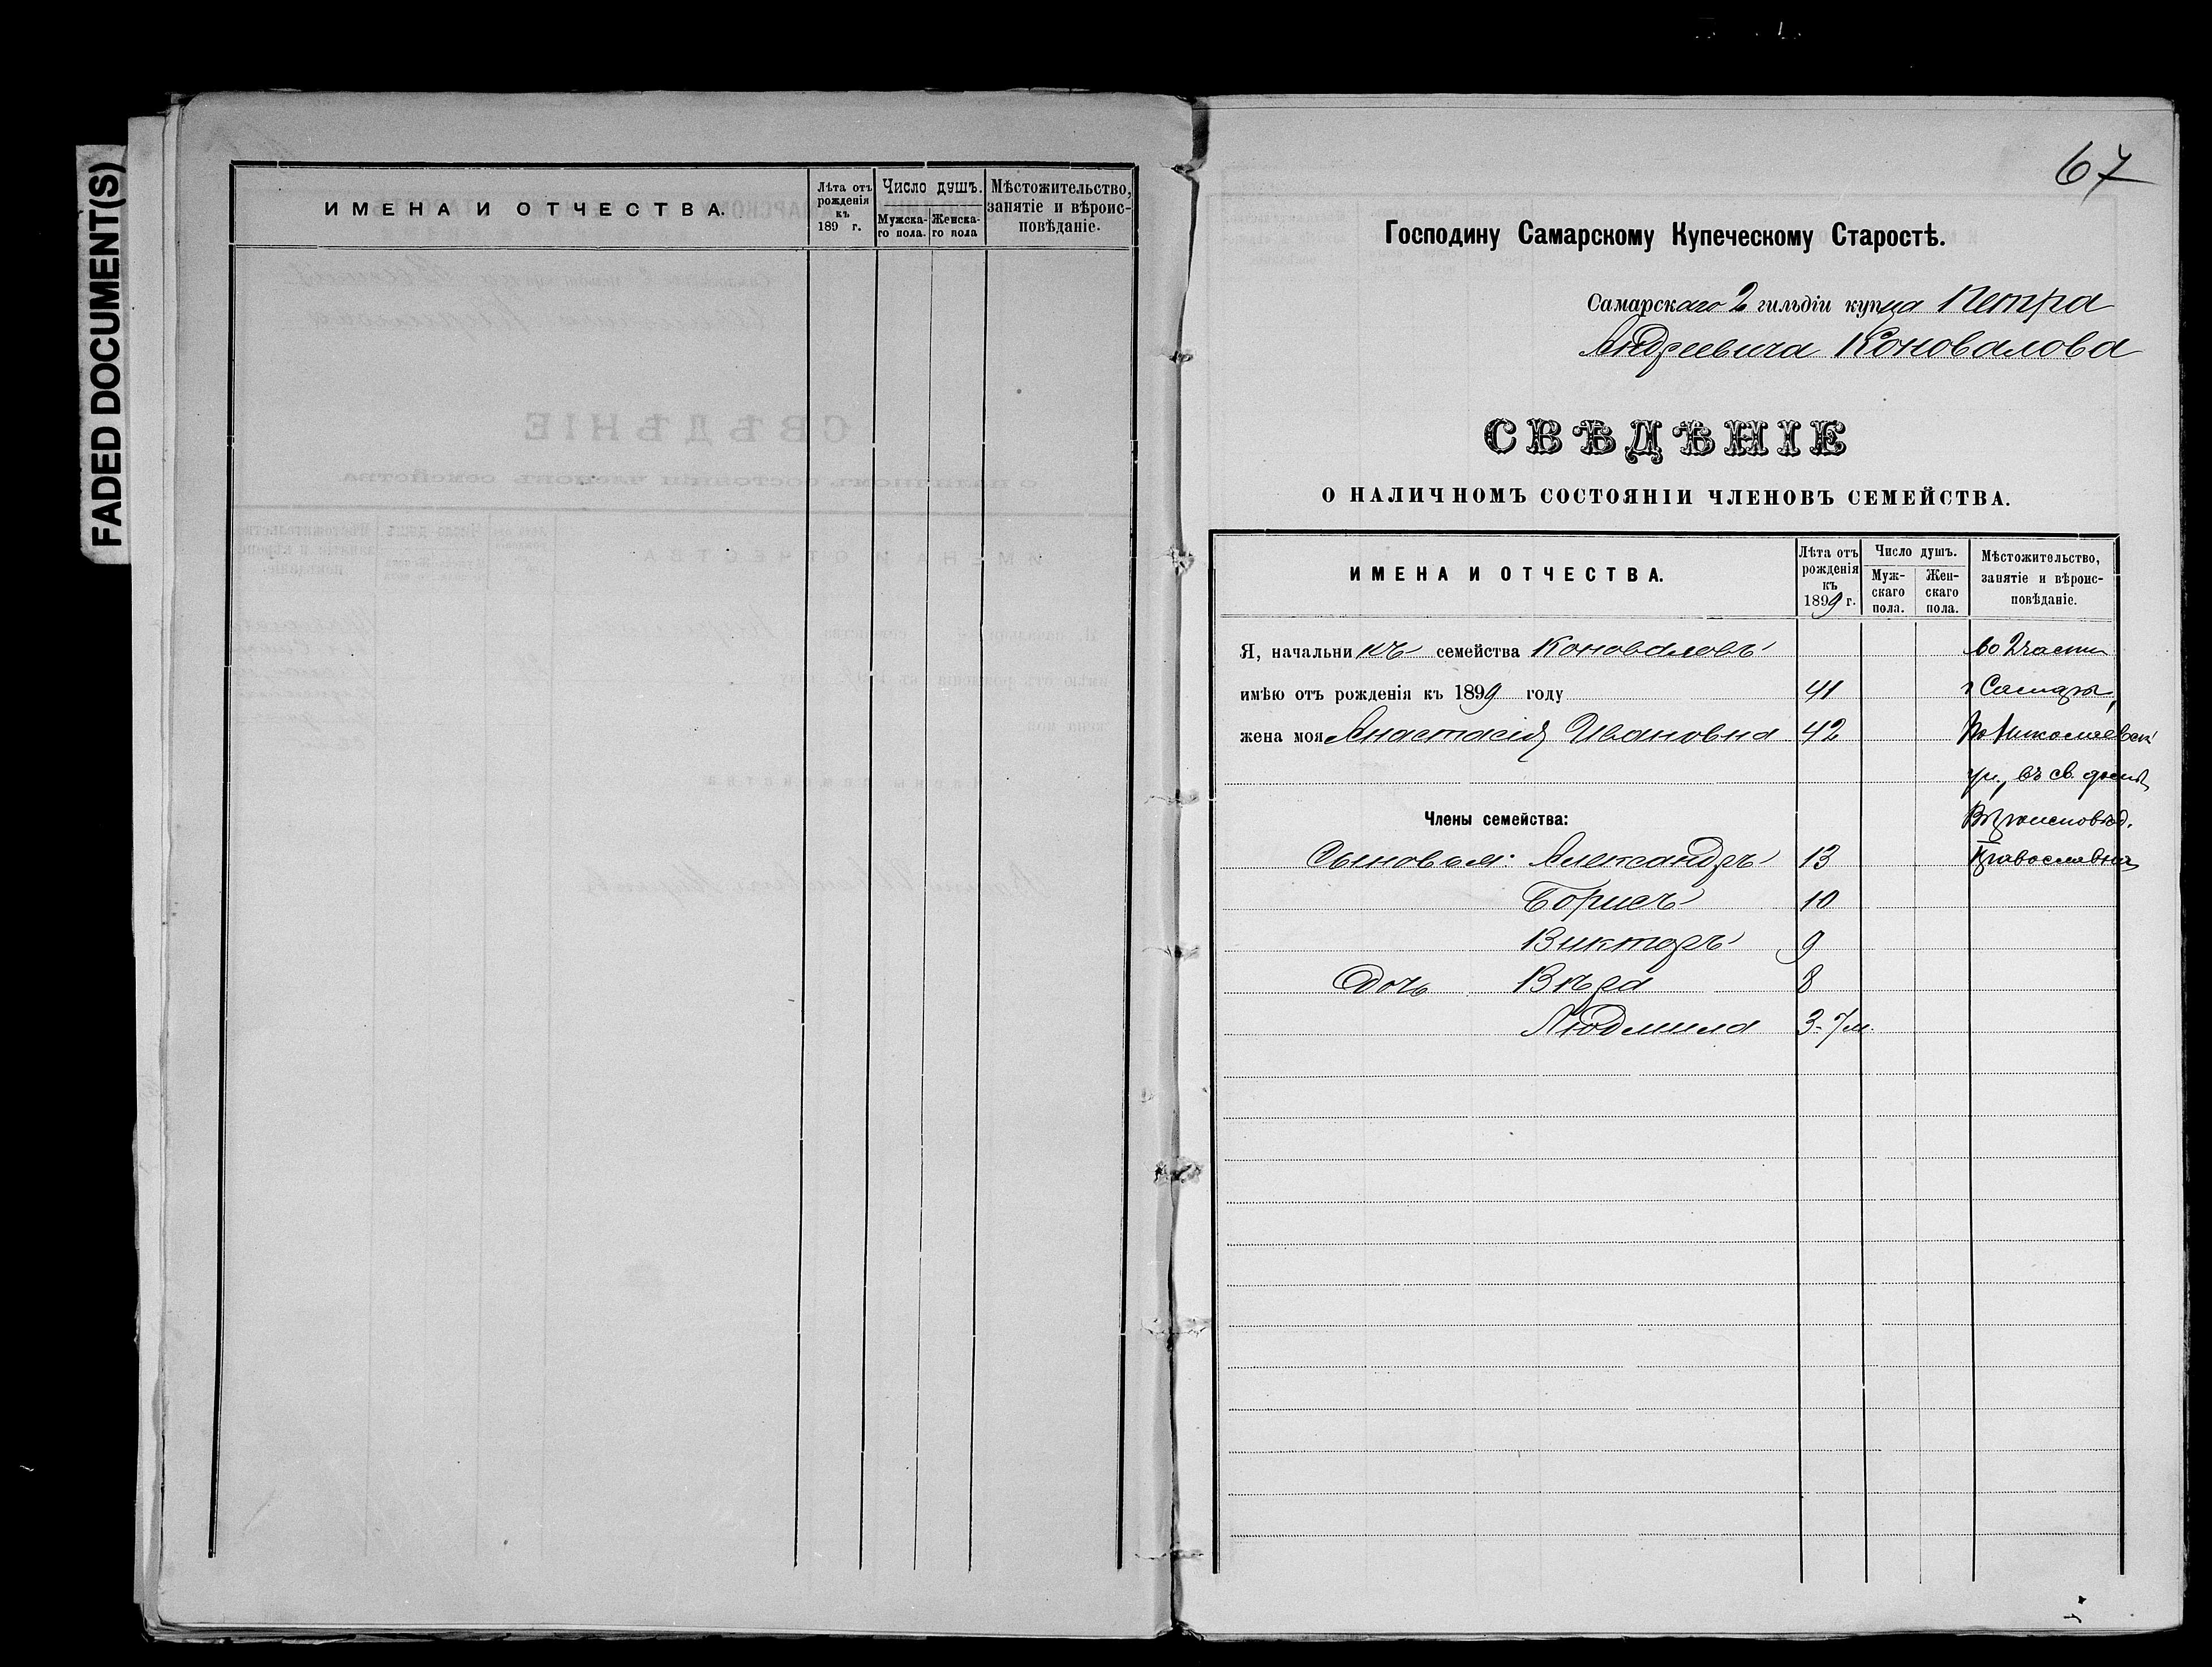 FADED DOCUMENT(S)
ИМЕНА И ОТЧЕСТВА.
Лѣта отъ рожденія къ 189 г.
Число душъ.
Мужска-го пола.
Женска-го пола
Мѣстожительство, занятіе и вѣроис-повѣданіе.
67
Господину Самарскому Купеческому Старостѣ.
Самарскаго 2 гильдіи купца Петра
Андреевича Коновалова
СВѢДѢНІЕ
О НАЛИЧНОМЪ СОСТОЯНІИ ЧЛЕНОВЪ СЕМЕЙСТВА.
ИМЕНА И ОТЧЕСТВА.
Лѣта отъ рожденія къ 1899 г.
Число душъ.
Муж-скаго пола.
Жен-скаго пола.
Мѣстожительство, занятіе и вѣроис-повѣданіе.
Я, начальникъ семейства Коноваловъ во 2 части
имѣю отъ рожденія къ 1899 году 41 г Самары,
жена моя Анастасія Ивановна 42 По Николаевск
ул., въ св. домѣ
Члены семейства: Вѣроисповѣд.
Сыновья: Александръ 13 Православнаг
Борисъ 10
Викторъ 9
Дочь Вѣра 8
Людмила 3-7 м.